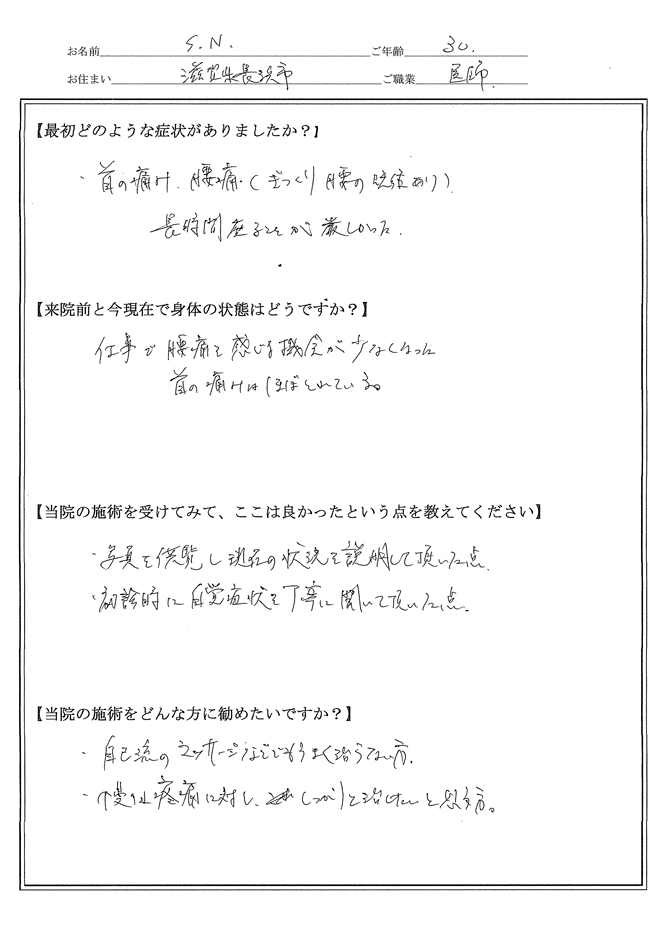 お名前 S.N. ご年齢 30.
お住まい 滋賀県長浜市 ご職業 医師
【最初どのような症状がありましたか？】
・首の痛み、腰痛（ぎっくり腰の既往あり）
長時間座ることが厳しかった.
【来院前と今現在で身体の状態はどうですか？】
仕事で腰痛を感じる機会が少なくなった
首の痛みはほぼとれている。
【当院の施術を受けてみて、ここは良かったという点を教えてください】
・写真を供覧し現在の状況を説明して頂いた点.
・初診時に自覚症状を丁寧に聞いて頂いた点.
【当院の施術をどんな方に勧めたいですか？】
・自己流のマッサージなどでもうまく治らない方.
・慢性疼痛に対し、しっかりと治したいと思う方。